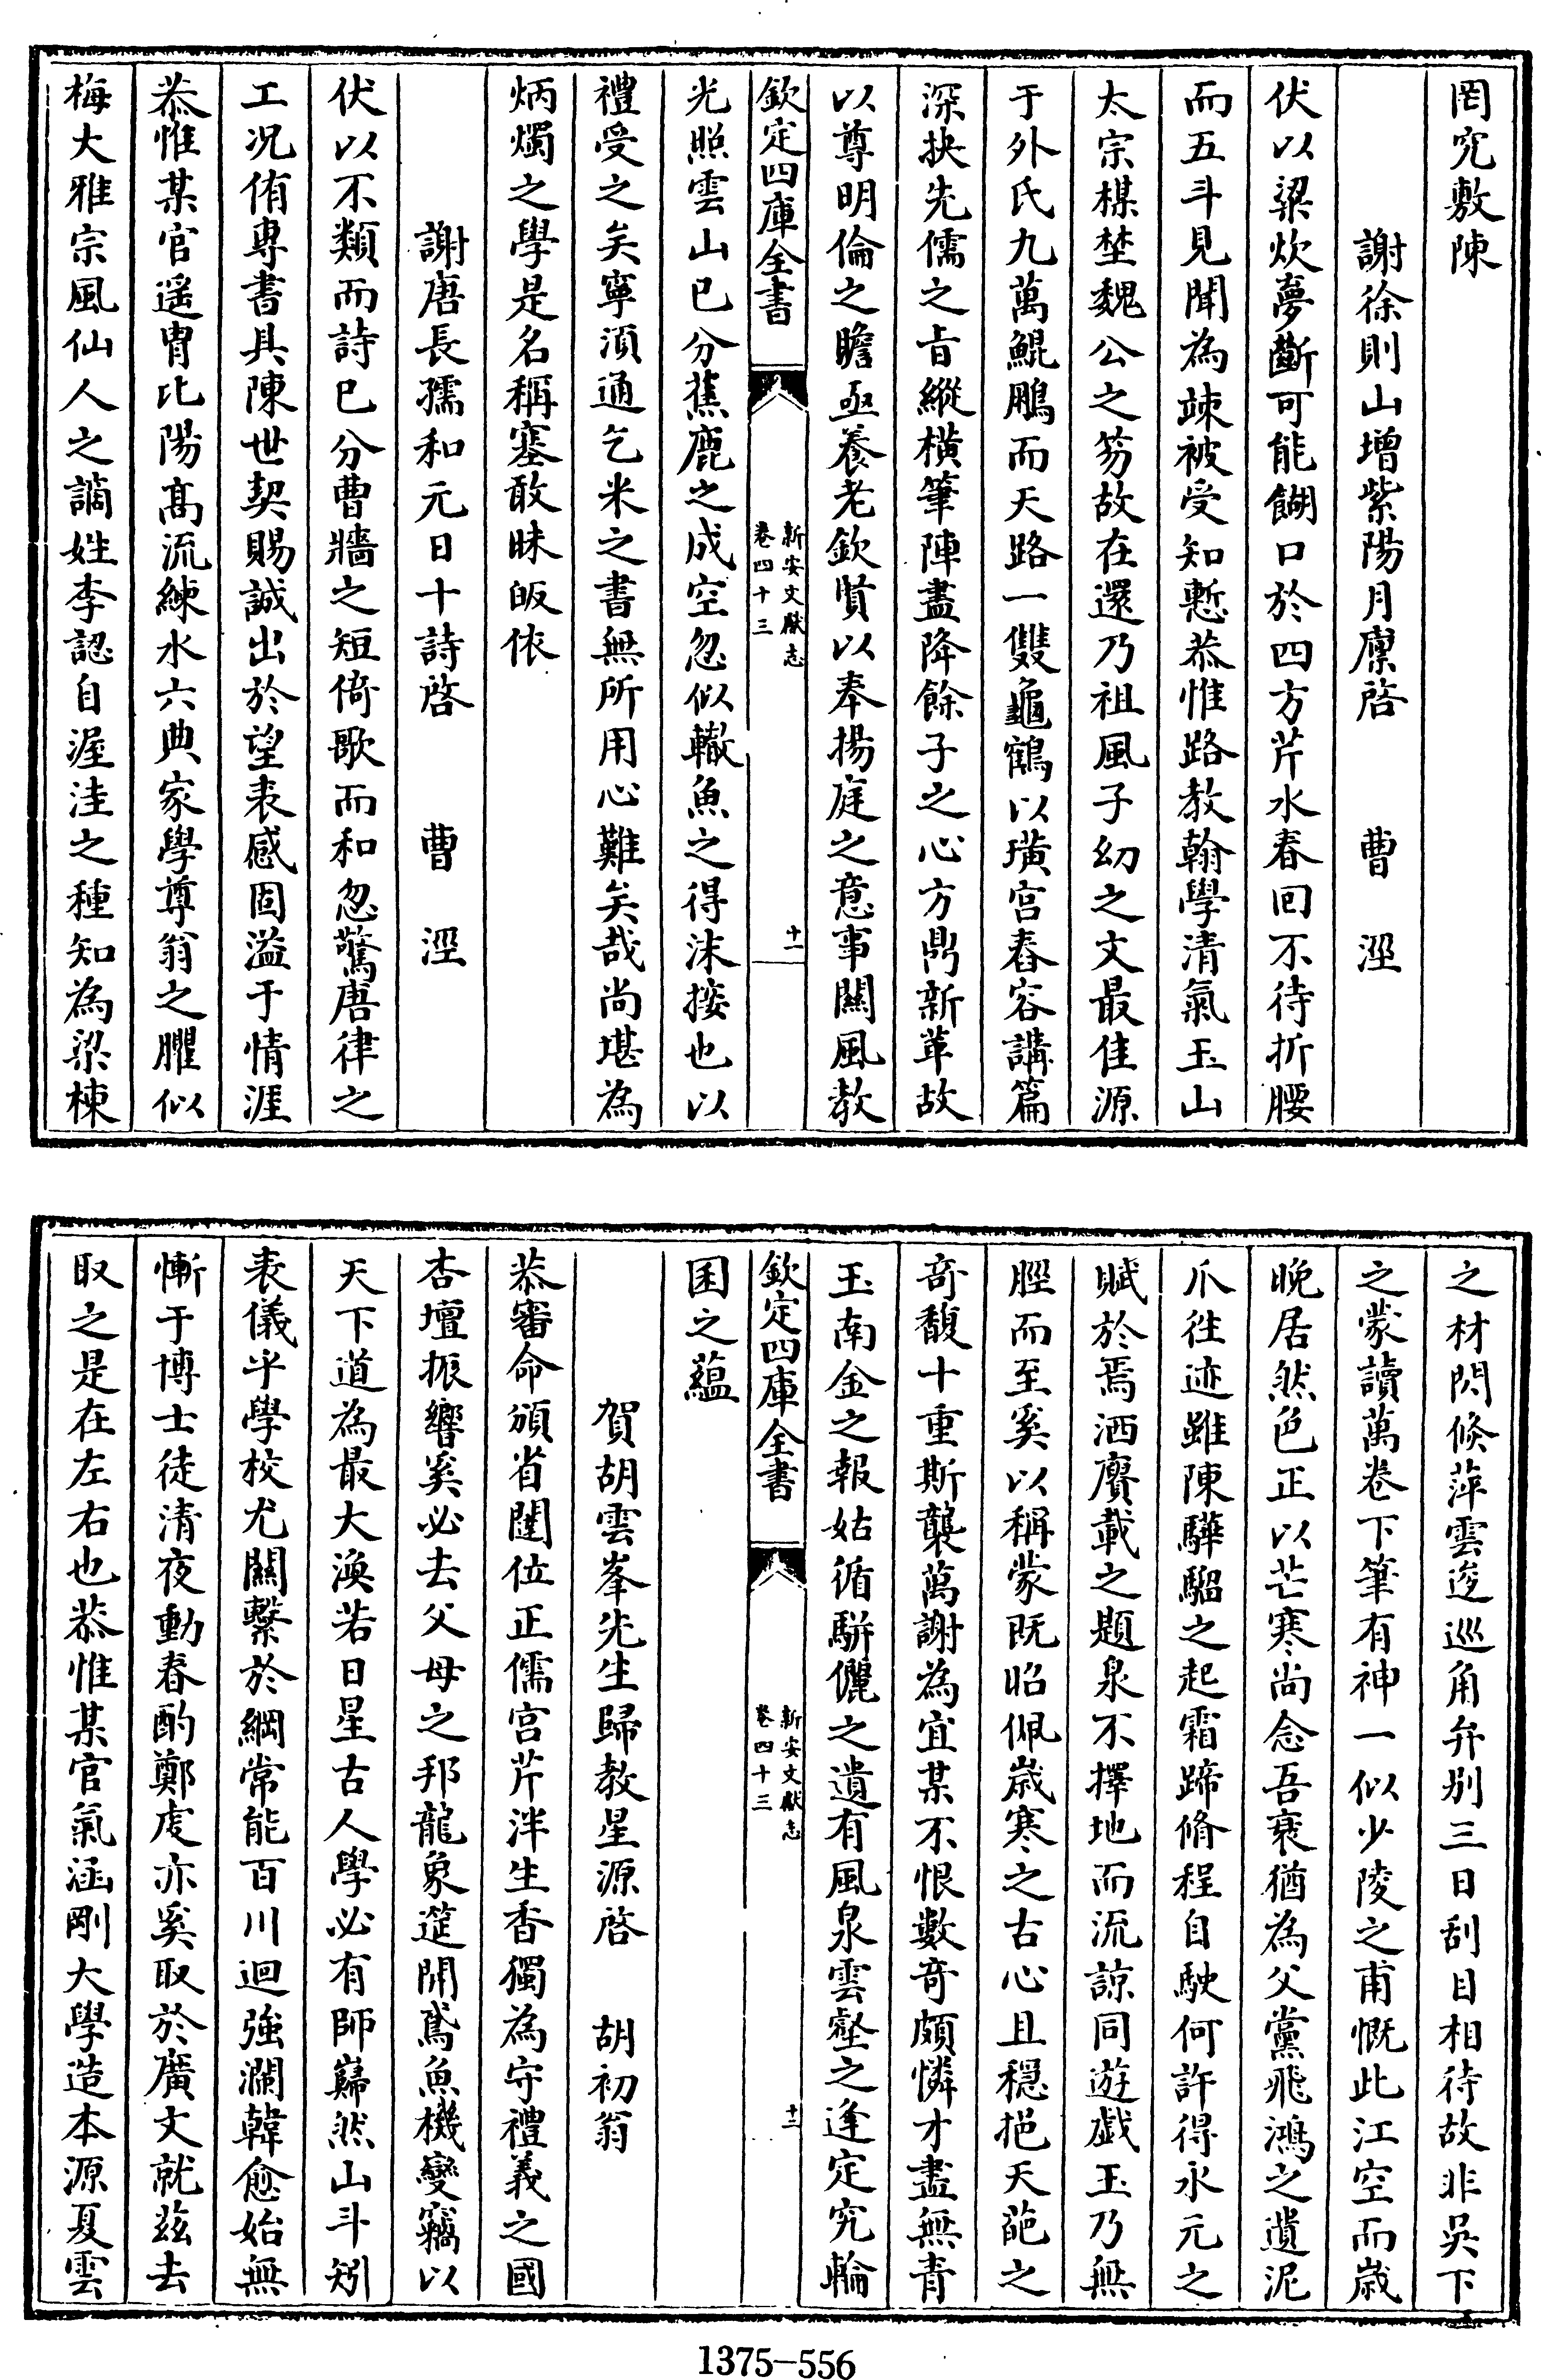 罔究敷陳
謝徐則山增紫陽月廩啓　曹涇
伏以粱炊夢斷可能餬口於四方芹水春回不待折腰
而五斗見聞為竦被受知慙恭惟路教翰學清氣玉山
太宗楳埜魏公之笏故在還乃祖風子幼之文最佳源
于外氏九萬鯤鵬而天路一雙龜鶴以璜宫舂容講篇
深抉先儒之㫖縱横筆陣盡降餘子之心方鼎新革故
以尊明倫之瞻亟養老欽賢以奉揚庭之意事關風教
欽定四庫全書
新安文獻志
卷四十三
十一
光照雲山已分蕉鹿之成空忽似轍魚之得沫接也以
禮受之矣寧須通乞米之書無所用心難矣哉尚堪為
炳燭之學是名稱塞敢昧皈依
謝唐長孺和元日十詩啓　曹涇
伏以不類而詩已分曹牆之短倚歌而和忽驚唐律之
工况侑專書具陳世契賜誠出於望表感固溢于情涯
恭惟某官遥胄比陽髙流練水六典家學尊翁之臞似
梅大雅宗風仙人之謫姓李認自渥洼之種知為梁棟
之材閃倐萍雲逡巡角弁别三日刮目相待故非吳下
之蒙讀萬卷下筆有神一似少陵之甫慨此江空而嵗
晚居然色正以芒寒尚念吾衰猶為父黨飛鴻之遺泥
爪往迹雖陳驊騮之起霜蹄脩程自駛何許得永元之
賦於焉洒賡載之題泉不擇地而流諒同遊戯玉乃無
脛而至奚以稱蒙既昭佩嵗寒之古心且穏挹天葩之
竒馥十重斯襲萬謝為宜某不恨數竒頗憐才盡無青
玉南金之報姑循駢儷之遺有風泉雲壑之逢定究輪
欽定四庫全書
新安文獻志
卷四十三
十二
囷之藴
賀胡雲峯先生歸教星源啓　胡初翁
恭審命頒省闥位正儒宫芹泮生香獨為守禮義之國
杏壇振響奚必去父母之邦龍象筵開鳶魚機變竊以
天下道為最大渙若日星古人學必有師巋然山斗矧
表儀乎學校尤關繫於綱常能百川迴強瀾韓愈始無
慚于博士徒清夜動春酌鄭虔亦奚取於廣文就兹去
取之是在左右也恭惟某官氣涵剛大學造本源夏雲
1375-556